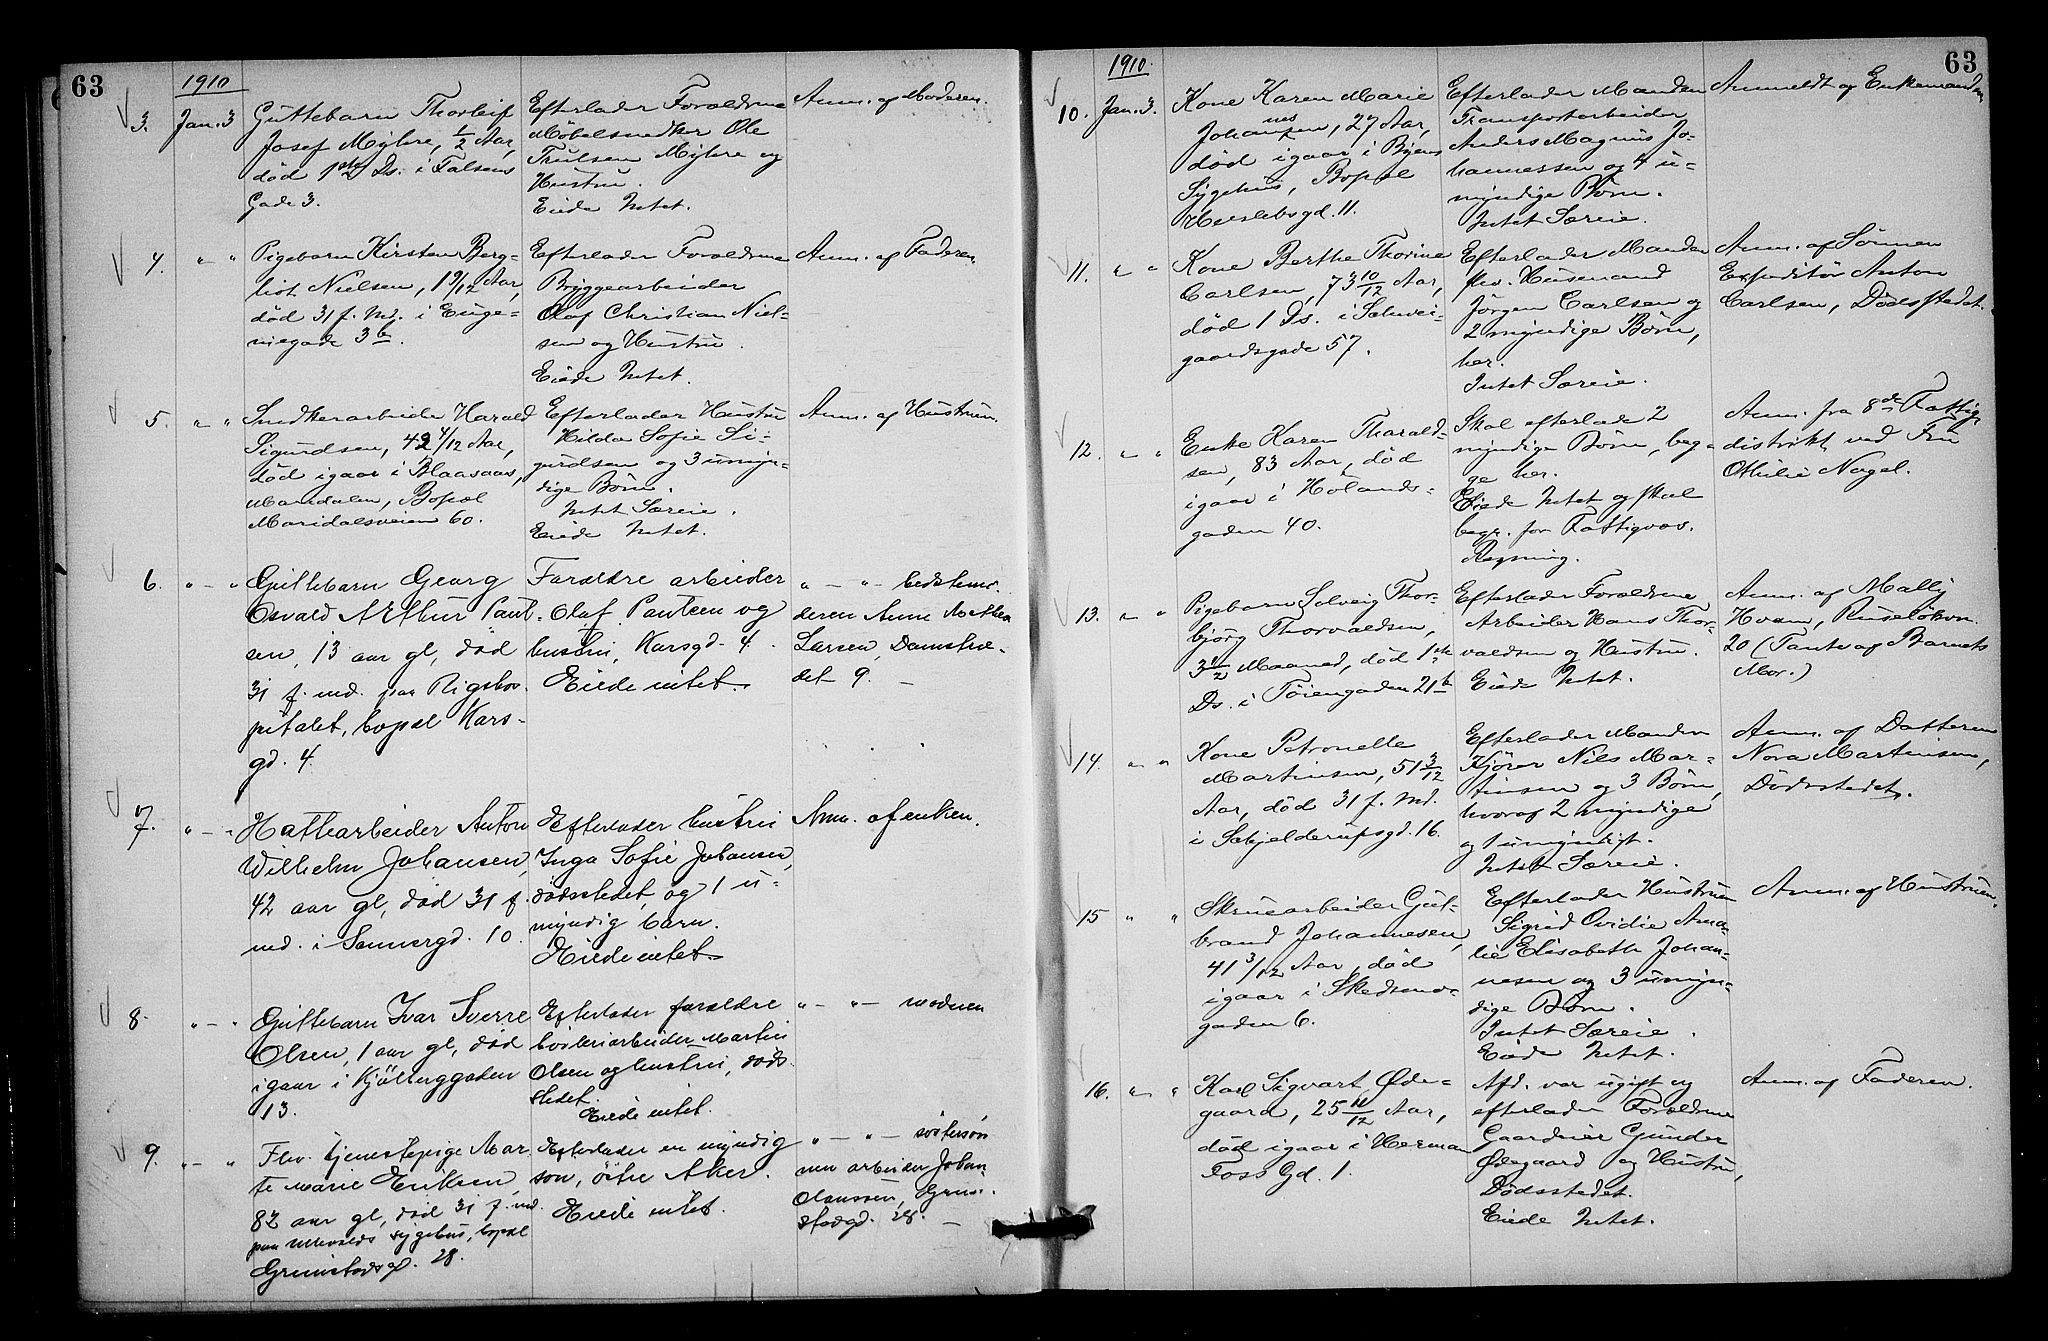 63
1910
3. Jan. 3
Guttebarn Thorleif
Josef Myhre, 1/2 Aar,
død 1ste Ds. i Falsens
Gade 3.
Efterlader Forældrene
Møbelsnedker Ole
Trulsen Myhre og
Hustru.
Eiede Intet.
Anm. af Moderen.
4. " - "
Pigebarn Kirsten Berg-
liot Nielsen, 1 9/12 Aar,
død 31 f. Md. i Euge-
niegade 3b.
Efterlader Forældrene
Bryggearbeider
Olaf Christian Niel-
sen og Hustru.
Eiede Intet.
Anm. af Faderen.
5. " - "
Snedkerarbeider Harald
Sigurdsen, 42 4/12 Aar,
død igaar i Blaasaas,
Maridalen, Bopæl
Maridalsveien 60.
Efterlader Hustru
Hilda Sofie Si-
gurdsen og 3 umyn-
dige Børn.
Intet Særeie.
Eiede Intet.
Anm. af Hustruen.
6. " - "
Guttebarn Georg
Osvald Arthur Paul-
sen, 13 aar gl, død
31 f. md. paa Rigshos-
pitalet, bopæl Kors-
gd. 4.
Forældre arbeider
Olaf Paulsen og
hustru, Korsgd. 4.
Eiede intet.
" - " - bedstemo-
deren Anne
Larsen, Damstræ-
det 9. -
7. " - "
Hattearbeider Anton
Wilhelm Johansen,
42 aar gl, død 31 f.
md. i Sannergd. 10.
Efterlader hustru
Inga Sofie Johansen,
dødsstedet, og 1 u-
myndig barn.
Eiede intet.
Anm. af enken.
8. " - "
Guttebarn Ivar Sverre
Olsen, 1 aar gl, død
igaar i Kjøllerggaden
13.
Efterlader forældre
Martin
Olsen og hustru, døds-
stedet.
Eiede intet.
" - " - moderen
9. " - "
Fhv. tjenestepige Mar-
te Marie Eriksen
82 aar gl, død 31 f. md.
paa Ullevolds sygehus, bopæl
Grimstadgd. 28.
Efterlader en myndig
søn, østre Aker.
Eiede intet.
" - " - søstersøn-
nen arbeider Johan
Olaussen, Grim-
stadgd. 28. -
63
1910.
10. Jan. 3.
Kone Karen Marie
Johannesen, 27 Aar,
død igaar i Byens
Sygehus, Bopæl
Heslebsgd. 11.
Efterlader Manden
Transportarbeider
Anders Magnus Jo-
hannessen og 4 u-
myndige Børn.
Intet Særeie.
Anmeldt af Enkemanden
11. " "
Kone Berthe Thorine
Carlsen, 73 10/12 Aar,
død 1 Ds. i Schwei-
gaardsgade 57.
Efterlader Manden
fhv. Husmand
Jörgen Carlsen og
2 myndige Børn,
her.
Intet Særeie.
Anm. af Sønnen
Expeditør Anton
Carlsen, Dødsstedet.
12. " "
Enke Karen Tharald-
sen, 83 Aar, død
igaar i Hølands-
gaden 40.
Skal efterlade 2
myndige Børn, beg-
ge her.
Eiede Intet og skal
begr. for Fattigvæs.
Regning.
Anm. fra 8de Fattig-
distrikt ved Fru
Othilie Nagel.
13. " "
Pigebarn Solveig Thor-
bjørg Thorvaldsen,
3 1/2 Maaned, død 1ste
Ds. i Tøiengaden 21b
Efterlader Forældrene
Arbeider Hans Thor-
valdsen og Hustru.
Eiede Intet.
Anm. af Mally
Hvam, Ruseløkvn.
20 (Tante af Barnets
Mor.)
14. " "
Kone Petronelle
Martinsen, 51 3/12
Aar, død 31 f. Md.
i Schjelderupsgd. 16.
Efterlader Manden
Kjører Nils Mar-
tinsen og 3 Børn,
hvoraf 2 myndige
og 1 umyndigt.
Intet Særeie.
Anm. af Datteren
Nora Martinsen,
Dødsstedet.
15 " "
Skruearbeider Gul-
brand Johannesen,
41 3/12 Aar, død
igaar i Skedsmo-
gaden 6.
Efterlader Hustruen
Sigrid Ovidie Ama-
lie Elisabeth Johan-
nesen og 3 umyn-
dige Børn.
Intet Særeie.
Eiede Intet.
Anm. af Hustruen.
16. " "
Karl Sigvart Øde-
gaard, 25 11/12 Aar,
død igaar i Herman
Foss Gd. 1.
Afd. var ugift og
efterlader Forældrene
Gaardeier Gunder
Ødegaard og Hustru,
Dødsstedet.
Eiede Intet.
Anm. af Faderen.